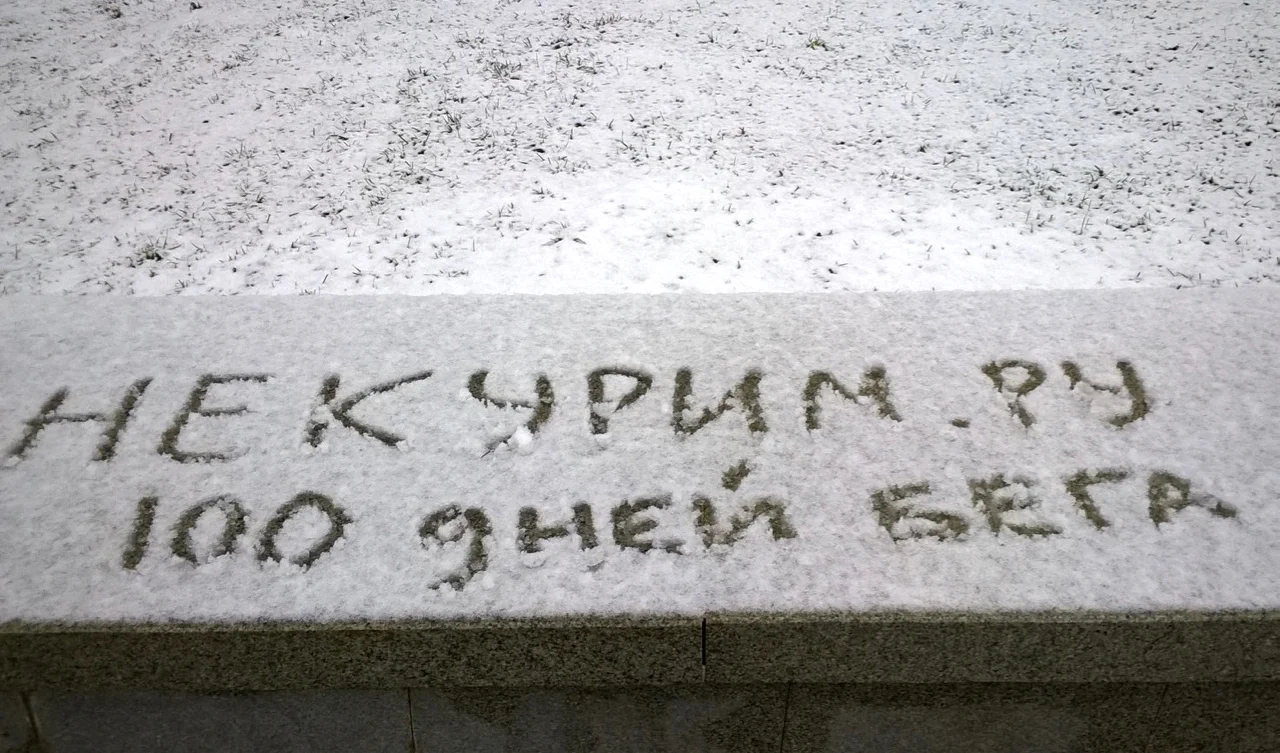 НЕКУРИМ.РУ
100 дней БЕГА